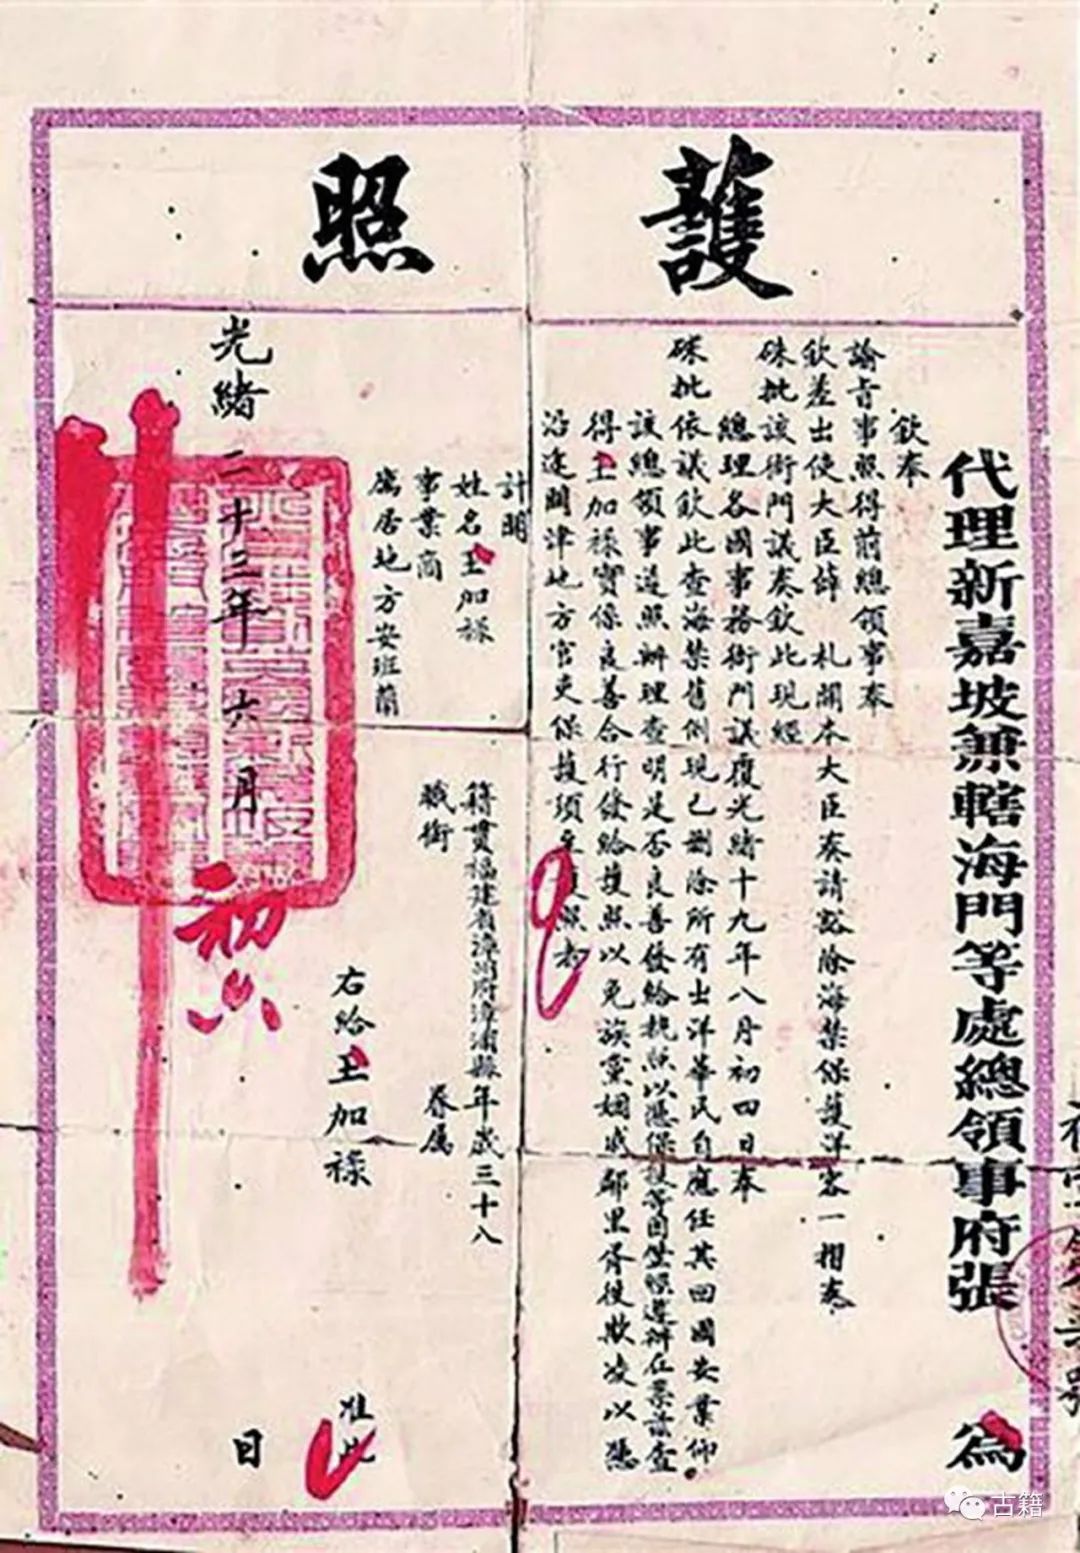 護照
代理新嘉坡兼轄海門等處總領事府張 為
欽奉
諭旨事照得前總領事奉
欽差出使大臣薛 札開本大臣奏請豁除海禁保護洋客一摺奉
硃批該衙門議奏欽此現經
總理各國事務衙門議覆光緒十九年八月初四日奉
硃批依議欽此查海禁舊例現已刪除所有出洋華民自應任其回國安業仰
該總領事遵照辦理查明是否良善發給執照以憑保護等因並照遵辦在案茲查
得王加祿實係良善合行發給護照以免族黨姻戚鄰里胥役欺凌以憑
沿途關津地方官吏保護須至護照者
計開
姓名王加祿 籍貫福建省漳州府漳浦縣 年歲三十八
事業商 職銜 眷屬
寓居地方安班蘭
右給王加祿 准此
光緒二十三年六月 初六 日
古籍